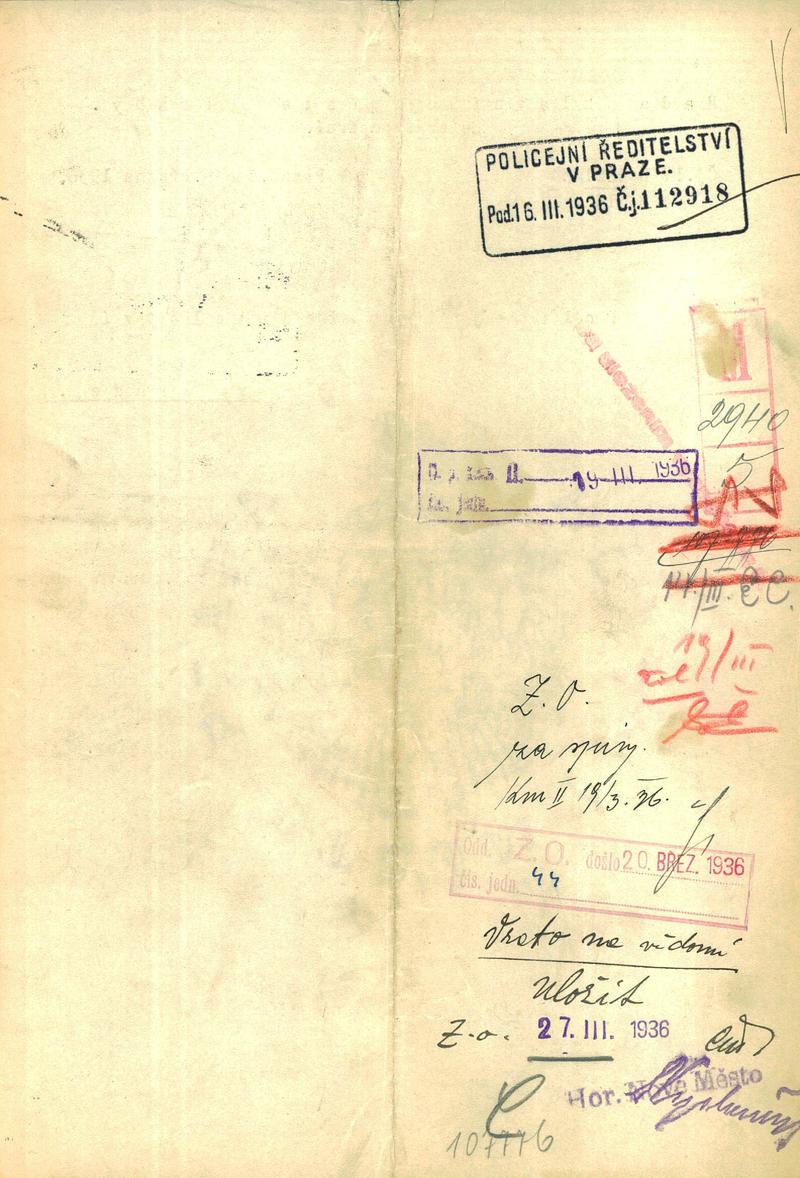 POLICEJNÍ ŘEDITELSTVÍ
V PRAZE.
Pod. 16. III. 1936 Č.j. 112918
II
2940
5
II. 19 III. 1936
čís. jedn.
17./III. ČČ.
19/III
Z. O.
Km II 19/3. 36.
Odd. Z. O. došlo 20. BŘEZ. 1936
čís. jedn. 44
Vzato na vědomí
uložit
Z. o. 27. III. 1936
Hor. Nové Město
107776